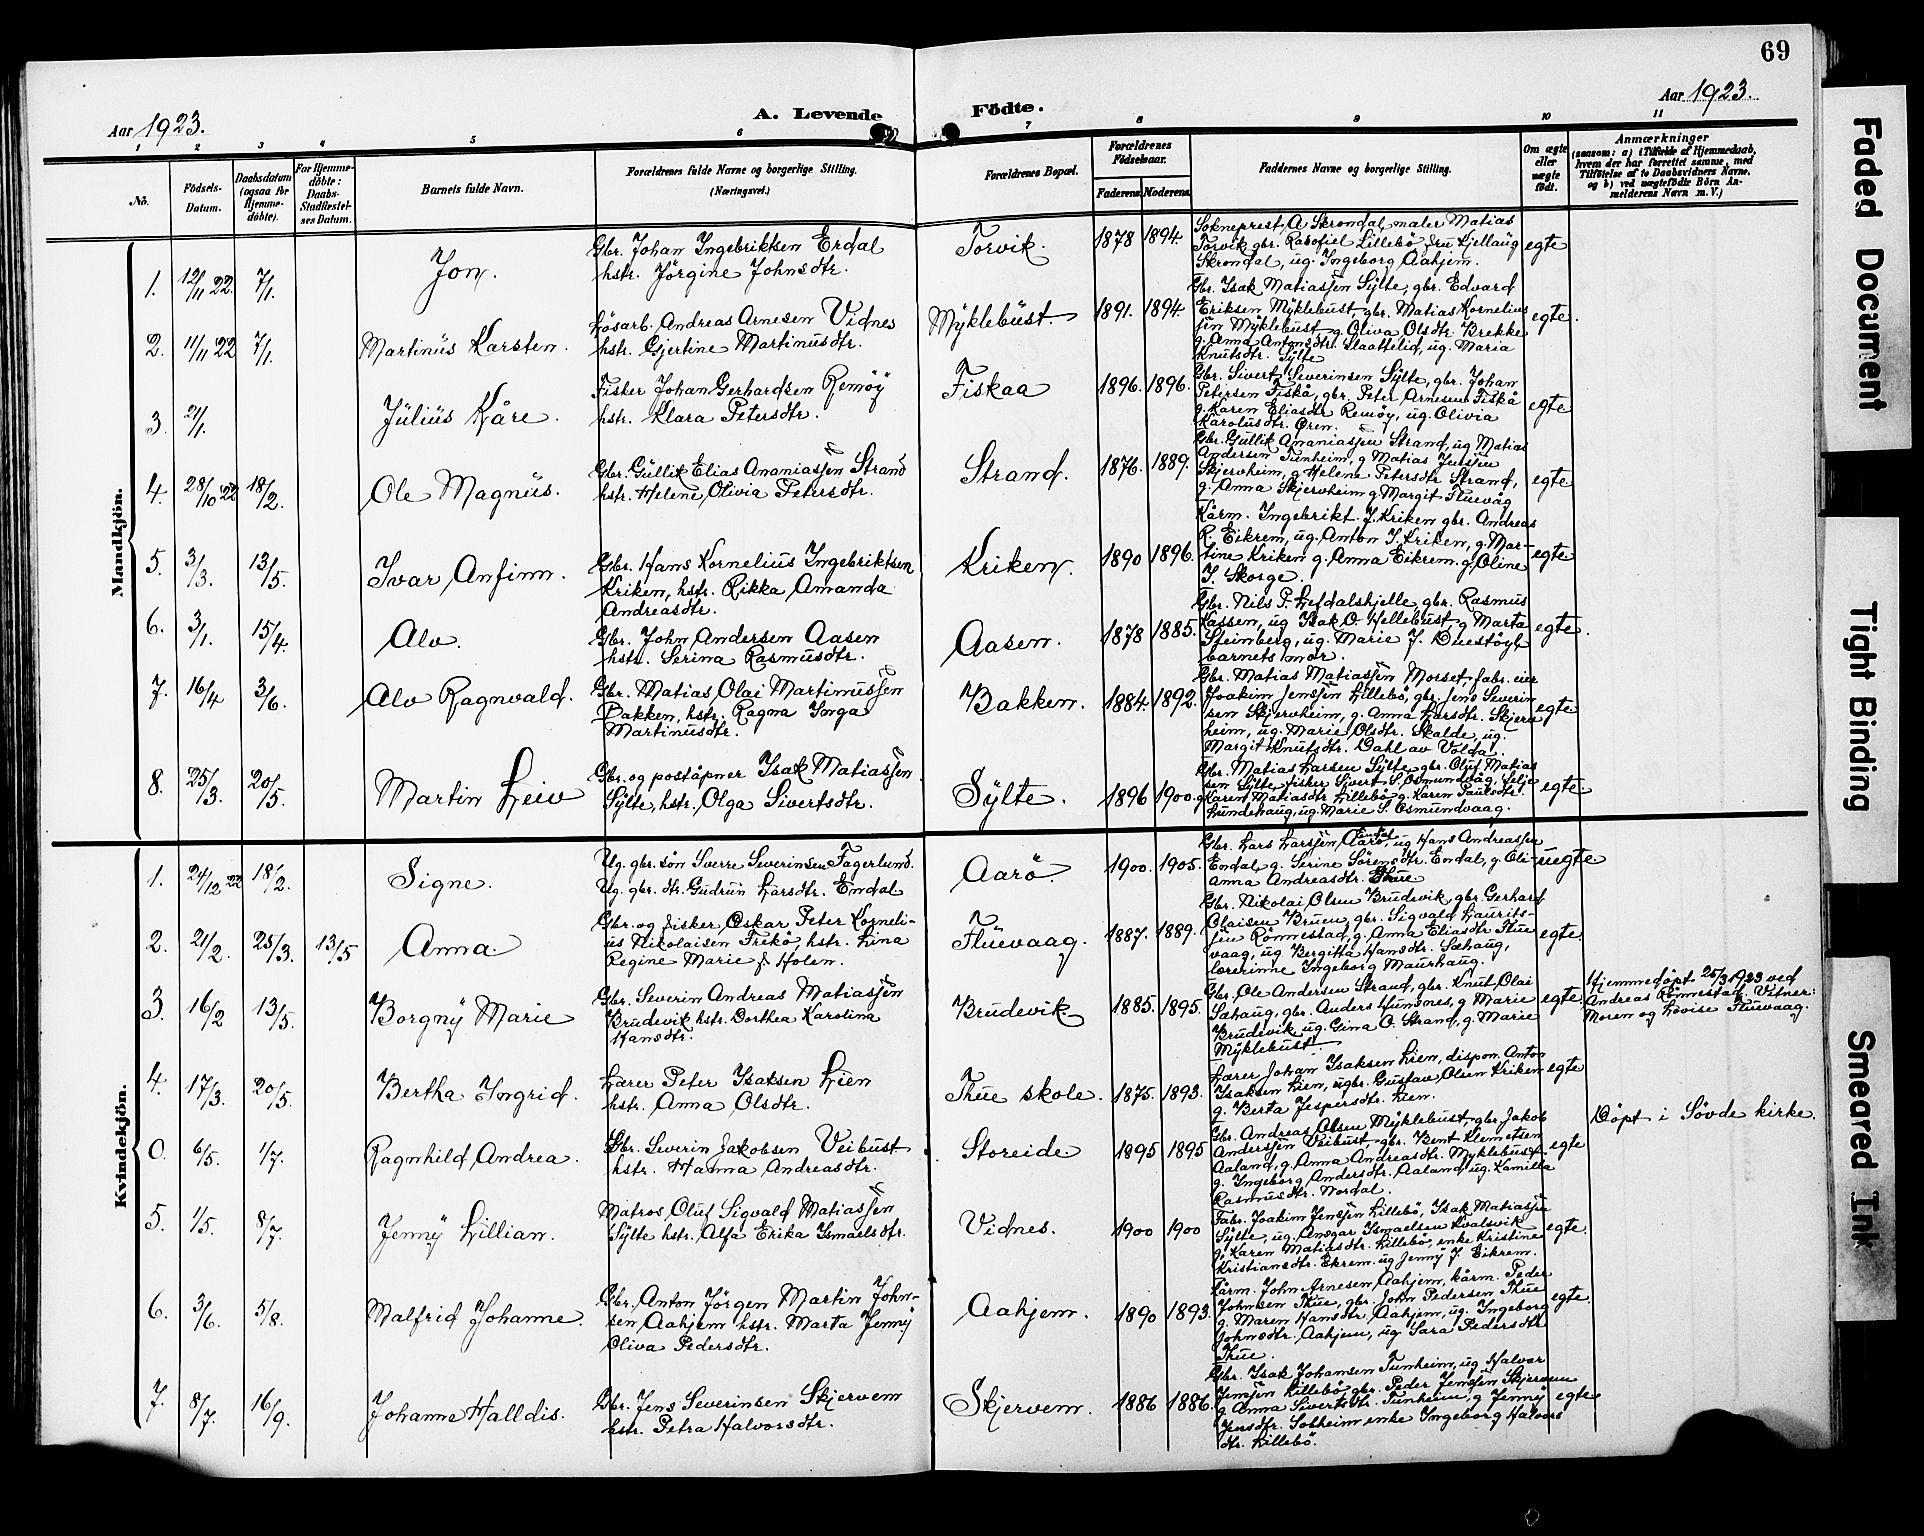 69
Aar 1923.
A. Levende Födte.
Aar 1923.
1 2 3 4 5 6 7 8 9 10 11
No.
Födsels-Datum.
Daabsdatum (ogsaa for Hjemme-döbte).
For Hjemme-döbte: Daabs-Stadfæstel-ses Datum.
Barnets fulde Navn.
Forældrenes fulde Navne og borgerlige Stilling.
(Næringsvei.)
Forældrenes Bopæl.
Forældrenes Födselsaar.
Faderens Moderens
Faddernes Navne og borgerlige Stilling.
Om ægte eller uægte födt.
Anmærkninger
(saasom: a) i Tilfælde af Hjemmedaab,
hvem der har forrettet samme, med
Tilföielse af to Daabsvidners Navne,
og b) ved uægtefödte Börn An-
melderens Navn m. V.)
Mandkjön.
1. 12/11 22. 7/1. Jon.
Gbr. Johan Ingebriktsen Erdal
hstr. Jörgine Johnsdtr.
Torvik. 1878 1894.
Sokneprest A Skrondal, maler Matias
Torvik gbr. Rasofiel Lillebö, fru Kjellaug
Skrondal, ug. Ingeborg Aahjem.
egte
2. 11/11 22 7/1. Martinus Karsten.
Lösarb. Andreas Arnesen Vidnes
hstr. Gjertine Martinusdtr.
Myklebust. 1891. 1894.
Gbr. Isak Matiassen Sylte, gbr. Edvard
Eriksen Myklebust gbr. Matias Kornelius
sen Myklebust g. Oliva Olsdtr. Brekke
g. Anna Antonsdtr. Slaattelid, ug. Maria
Knutsdtr. Sylte
egte.
3. 21/1. Julius Kåre.
Fisker Johan Gerhardsen Remöy
hstr. Klara Petersdtr.
Fiskaa 1896. 1896.
Gbr. Sivert Severinsen Sylte, gbr. Johan
Petersen Fiskå, gbr. Peter Arnesen Fiskå
g. Karen Eliasdtr Remöy, ug. Olivia
Karolusdtr. Ören.
egte
4. 28/10 22 18/2. Ole Magnus.
Gbr. Gullik Elias Ananiassen Strand
hstr. Helene Olivia Petersdtr.
Strand. 1876. 1889.
Gbr. Gullik Ananiassen Strand, ug Matias
Andersen Tunheim, g Matias Julsen
Skjervheim, g Helene Petersdtr Strand,
g. Anna Skjervheim g Margit Fluevåg
egte
5. 3/3. 13/5. Ivar Anfinn.
Gbr. Hans Kornelius Ingebriktsen
Kriken, hstr. Rikka Amanda
Andreasdtr.
Kriken. 1890 1896.
Kårm. Ingebrikt J. Kriken gbr. Andreas
R. Eikrem, ug. Anton I. Kriken, g. Mar-
tine Kriken g. Anna Eikrem. g. Oline
I. Skorge.
egte
6. 3/1. 15/4. Alv.
Gbr. John Andersen Aasen
hstr. Serina Rasmusdtr.
Aasen. 1878 1885.
Gbr. Nils P. Lefdalshjelle, gbr. Rasmus
Kassen, ug Isak O Hellebust g Marta
Steinberg, ug. Marie J.
barnets mor.
egte.
7. 16/4 3/6. Alv Ragnvald.
Gbr. Matias Olai Martinussen
Bakken, hstr. Ragna Inga
Martinusdtr.
Bakken. 1884. 1892.
Gbr. Matias Matiassen Morset, fabr. eier
Joakim Jenssen Lillebö, gbr. Jens Severin
sen Skjervheim, g. Anna Larsdtr. Skjerv
heim, ug. Marie Olsdtr. Skalde, ug.
Margit Knutsdtr. Dahl av Volda.
egte
8. 25/3. 20/5. Martin Leiv
Gbr. og poståpner Isak Matiassen
Sylte, hstr. Olga Sivertsdtr.
Sylte. 1896 1900.
Gbr. Matias Larsen Sylte gbr. Oluf Matias
sen Sylte fisker Sivert S. Osmundvåg, Selje
g Karen Matiasdtr Lillebö g. Karen Paulsdtr.
Lundehaug, ug. Marie S. Osmundvaag.
egte
Kvindekjön.
1. 24/12 22 18/2. Signe.
Ug. gbr. sön Sverre Severinsen Fagerlund.
Ug. gbr. dtr. Gudrun Larsdtr. Endal
Aarö. 1900. 1905.
Gbr. Lars Larssen, Aarö, ug Hans Andreassen
Endal, g. Serine Sörensdtr. Endal, g. Oli-
Anna Andreasdtr. Thue
uegte
2. 21/2. 25/3. 13/5 Anna.
Gbr. og fisker Oskar Peter Korneli-
us Nikolaisen Frekö, hstr. Lina
Regine Marie f. Holen.
Fluevaag. 1887. 1889.
Gbr. Nikolai Olsen Brudevik, gbr. Gerhard
Olaisen Bruen, gbr. Sigvald Laurits-
sen Rönnestad, g. Anna Eliasdtr Flue
vaag, ug Bergitta Hansdtr. Sæhaug,
lærerinne Ingeborg Maurhaug.
egte.
Hjemmedöpt 25/3 1923 ved
Andreas Rönnestad. Vitner:
Moren og Lovise Fluevaag.
3. 16/2 13/5. Borgny Marie
Gbr. Severin Andreas Matiassen
Brudevik hstr. Dorthea Karolina
Hansdtr.
Brudevik 1885. 1895.
Gbr. Ole Andersen Strand, gbr. Knut Olai
Sæhaug, gbr. Anders Humsnes, g Marie
Brudevik ug. Gina O. Strand, g. Marie
Myklebust.
egte
4. 17/3. 20/5. Bertha Ingrid.
Lærer Peter Isaksen Lien
hstr. Anna Olsdtr.
Thue skole. 1875. 1893.
Lærer Johan Isaksen Lien, dispon. Anton
Isaksen Lien, ugbr. Gustav Olsen Kriken
g. Berta Jespersdtr. Lien.
egte
0. 6/5. 1/7. Ragnhild Andrea.
Gbr. Severin Jakobsen Veibust
hstr. Hanna Andreasdtr.
Storeide 1895 1895
Gbr. Andreas Olsen Myklebust, gbr. Jakob
Anderssen Veibust, gbr. Bent Klemetsen
Aaland, g. Anna Andreasdtr. Myklebust
g. Ingeborg Andersdtr. Aaland, ug. Kamilla
Rasmusdtr. Nordal.
egte
Döpt i Sövde kirke.
5. 1/5. 8/7. Jenny Lillian.
Matros Oluf Sigvald Matiassen
Sylte hstr. Alfa Erika Ismaelsdtr.
Vidnes. 1900 1900
Fabr. Joakim Jenssen Lillebö, Isak Matiassen
Sylte, ug. Ansgar Ismaelsen Kvalsvik
g. Karen Matiasdtr. Lillebö, enke Kristine
Kristiansdtr. Ekrem. ug Jenny J. Eikrem.
egte.
6. 3/6. 5/8. Malfrid Johanne.
Gbr. Anton Jörgen Martin John-
sen Aahjem hstr. Marta Jenny
Oliva Pedersdtr.
Aahjem. 1890 1893.
Kårm. John Arnesen Aahjem, kårm. Peder
Johnsen Thue, gbr. John Pedersen Thue
g. Maren Hansdtr. Aahjem, ug. Ingeborg
Johnsdtr. Aahjem, ug Sara Pedersdtr
Thue.
egte.
7. 8/7. 16/9. Johanne Halldis.
Gbr. Jens Severinsen Skjervem
hstr. Petra Halvorsdtr.
Skjervem. 1886 1886.
Gbr. Isak Johansen Tunheim, ug Halvor
Jenssen Lillebö, gbr. Peder Jenssen Skjervem
g. Anna Sivertsdtr. Tunheim, g Jenny
Jensdtr. Solheim enke Ingeborg Halvors
dtr. Lillebö.
egte
Faded Document
Tight Binding
Smeared Ink